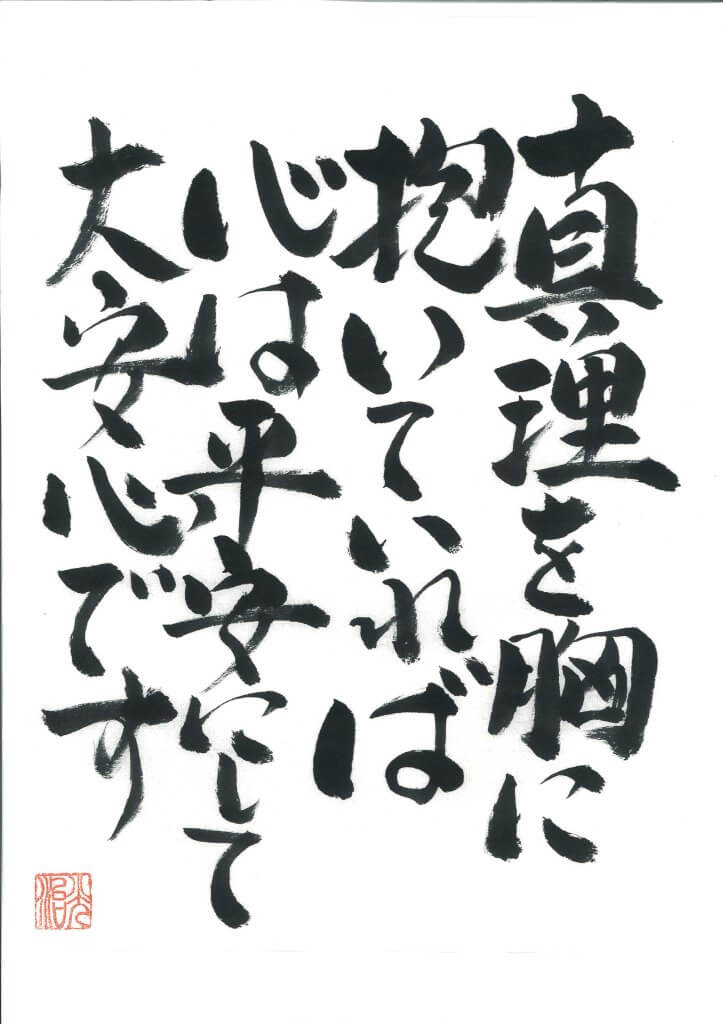 真理を胸に
抱いていれば
心は平安にして
大安心です